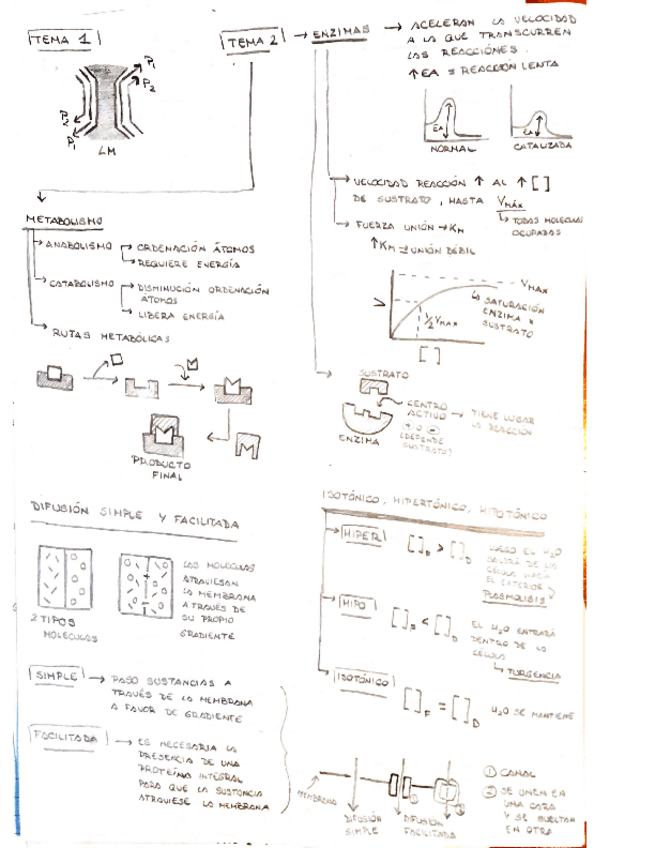 TEMA 1
P1
P2
P2
P1
LM
TEMA 2 → ENZIMAS → ACELERAN LA VELOCIDAD
A LA QUE TRANSCURREN
LAS REACCIÓNES.
↑ EA = REACCIÓN LENTA
EA
NORMAL
EA
CATALIZADA
→ VELOCIDAD REACCIÓN ↑ AL ↑ [ ]
DE SUSTRATO, HASTA VMÁX
↳ TODAS MOLECULAS
OCUPADAS
→ FUERZA UNIÓN → KM
↑ KM = UNIÓN DÉBIL
V
VMAX
½ VMAX
↳ SATURACIÓN
ENZIMA x
SUSTRATO
[ ]
SUSTRATO
CENTRO
ACTIVO → TIENE LUGAR
LA REACCIÓN
+ o -
(DEPENDE
SUSTRATO)
ENZIMA
METABOLISMO
→ ANABOLISMO → ORDENACIÓN ÁTOMOS
→ REQUIERE ENERGÍA
→ CATABOLISMO → DISMINUCIÓN ORDENACIÓN
ÁTOMOS
→ LIBERA ENERGÍA
→ RUTAS METABÓLICAS
PRODUCTO
FINAL
DIFUSIÓN SIMPLE Y FACILITADA
2 TIPOS
MOLECULAS
LAS MOLECULAS
ATRAVIESAN
LA MEMBRANA
A TRAVÉS DE
SU PROPIO
GRADIENTE
SIMPLE → PASO SUSTANCIAS A
TRAVÉS DE LA MEMBRANA
A FAVOR DE GRADIENTE
FACILITADA → ES NECESARIA LA
PRESENCIA DE UNA
PROTEÍNA INTEGRAL
PARA QUE LA SUSTANCIA
ATRAVIESE LA MEMBRANA
ISOTÓNICO, HIPERTÓNICO, HIPOTÓNICO
→ HIPER [ ]F > [ ]D
LUEGO EL H2O
SALDRÁ DE LA
CÉLULA HACIA
EL EXTERIOR
PLASMOLISIS
→ HIPO [ ]F < [ ]D
EL H2O ENTRARÁ
DENTRO DE LA
CÉLULA
↳ TURGENCIA
→ ISOTÓNICO
[ ]F = [ ]D H2O SE MANTIENE
MEMBRANA
DIFUSIÓN
SIMPLE
DIFUSIÓN
FACILITADA
① CANAL
② SE UNEN EN
UNA CARA
Y SE SUELTAN
EN OTRA